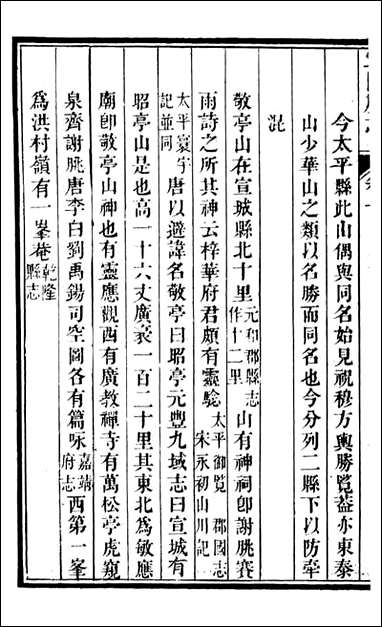 今太平縣此山偶與同名始見祝穆方輿勝覽葢亦東泰
山少華山之類以名勝而同名也今分列二縣下以防牽
混
敬亭山在宣城縣北十里元和郡縣志作十二里山有神祠卽謝脁賽
雨詩之所其神云梓華府君頗有靈驗太平御覽 郡國志 宋永初山川記
太平寰宇記並同唐以避諱名敬亭曰昭亭元豐九域志曰宣城有
昭亭山是也高一十六丈廣袤一百二十里其東北爲敏應
廟卽敬亭山神也有靈應觀西有廣教禪寺有萬松亭虎窺
泉齊謝脁唐李白劉禹錫司空圖各有篇咏嘉靖府志西第一峯
爲洪村嶺有一峯庵乾隆縣志